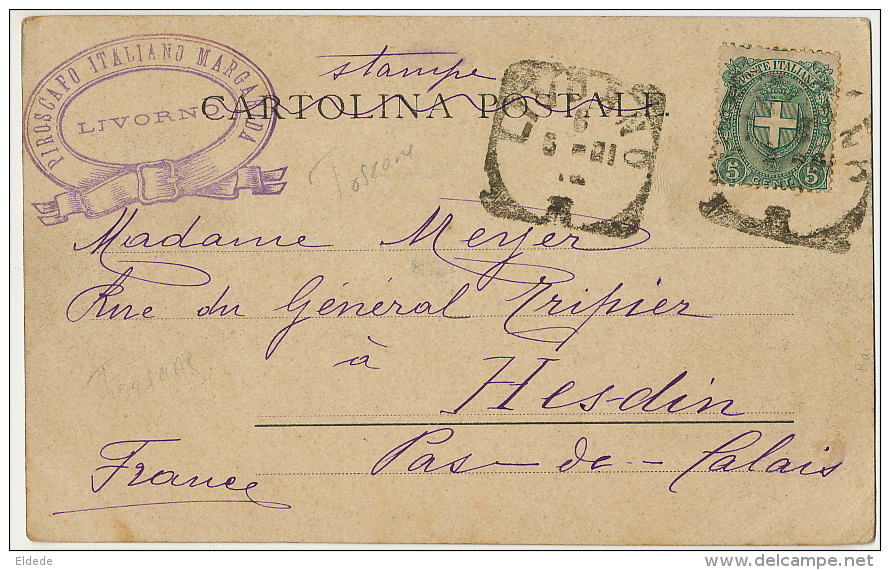 PIROSCAFO ITALIANO MARGARIDA
LIVORNO
stampe
CARTOLINA POSTALE.
POSTE ITALIANE
5 5
Toscane
Madame Meyer
Rue du Général Tripier
à
Hesdin
Toscane
Pas-de-Calais
France
Eldede
delcampe.net